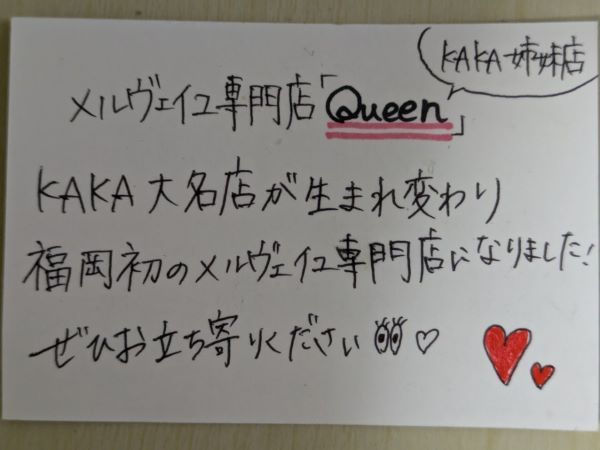 KAKA姉妹店
メルヴェイユ専門店「Queen」
KAKA大名店が生まれ変わり
福岡初のメルヴェイユ専門店になりました!
ぜひお立ち寄りください♡